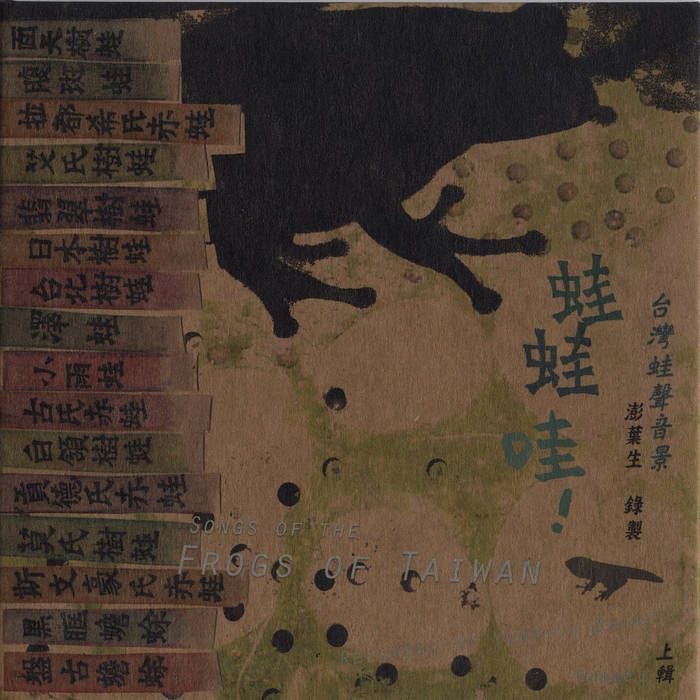 面天樹蛙
腹斑蛙
拉都希氏赤蛙
艾氏樹蛙
翡翠樹蛙
日本樹蛙
台北樹蛙
澤蛙
小雨蛙
古氏赤蛙
白頷樹蛙
貢德氏赤蛙
莫氏樹蛙
斯文豪氏赤蛙
黑眶蟾蜍
盤古蟾蜍
蛙
蛙
哇!
台灣蛙聲音景
澎葉生 錄製
SONGS OF THE
FROGS OF TAIWAN
上輯